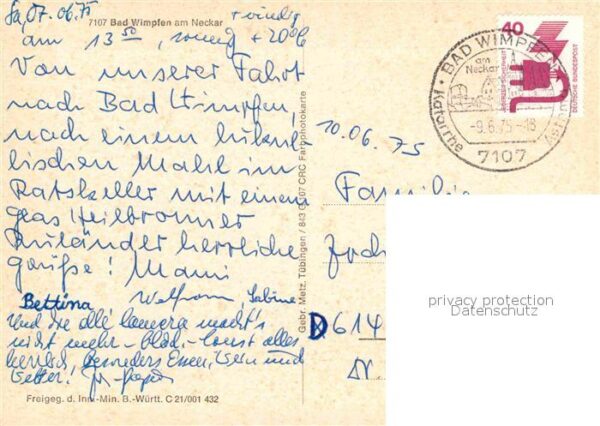 Sa, 07.06.75
7107 Bad Wimpfen am Neckar
+ windig
am 13 50, sonnig +20°C
Von unserer Fahrt
nach Bad Wimpfen,
nach einem lukul-
lischen Mahl im
Ratskeller mit einem
Glas Heilbronner
Ruländer herrliche
Grüße! Mami
Bettina Wolfram, Sabine
Und die alle Camera macht's
nicht mehr – blöd – sonst alles
herrlich, besonders Essen, Wein und
Wetter!
Freigeg. d. Inn.-Min. B.-Württ. C 21/001 432
Gebr. Metz, Tübingen / 843 07 CRC Farbphotokarte
10.06.75
Familie
D 614
40
DEUTSCHE BUNDESPOST
BAD WIMPFEN
am
Neckar
-9.6.75-18
7107
privacy protection
Datenschutz